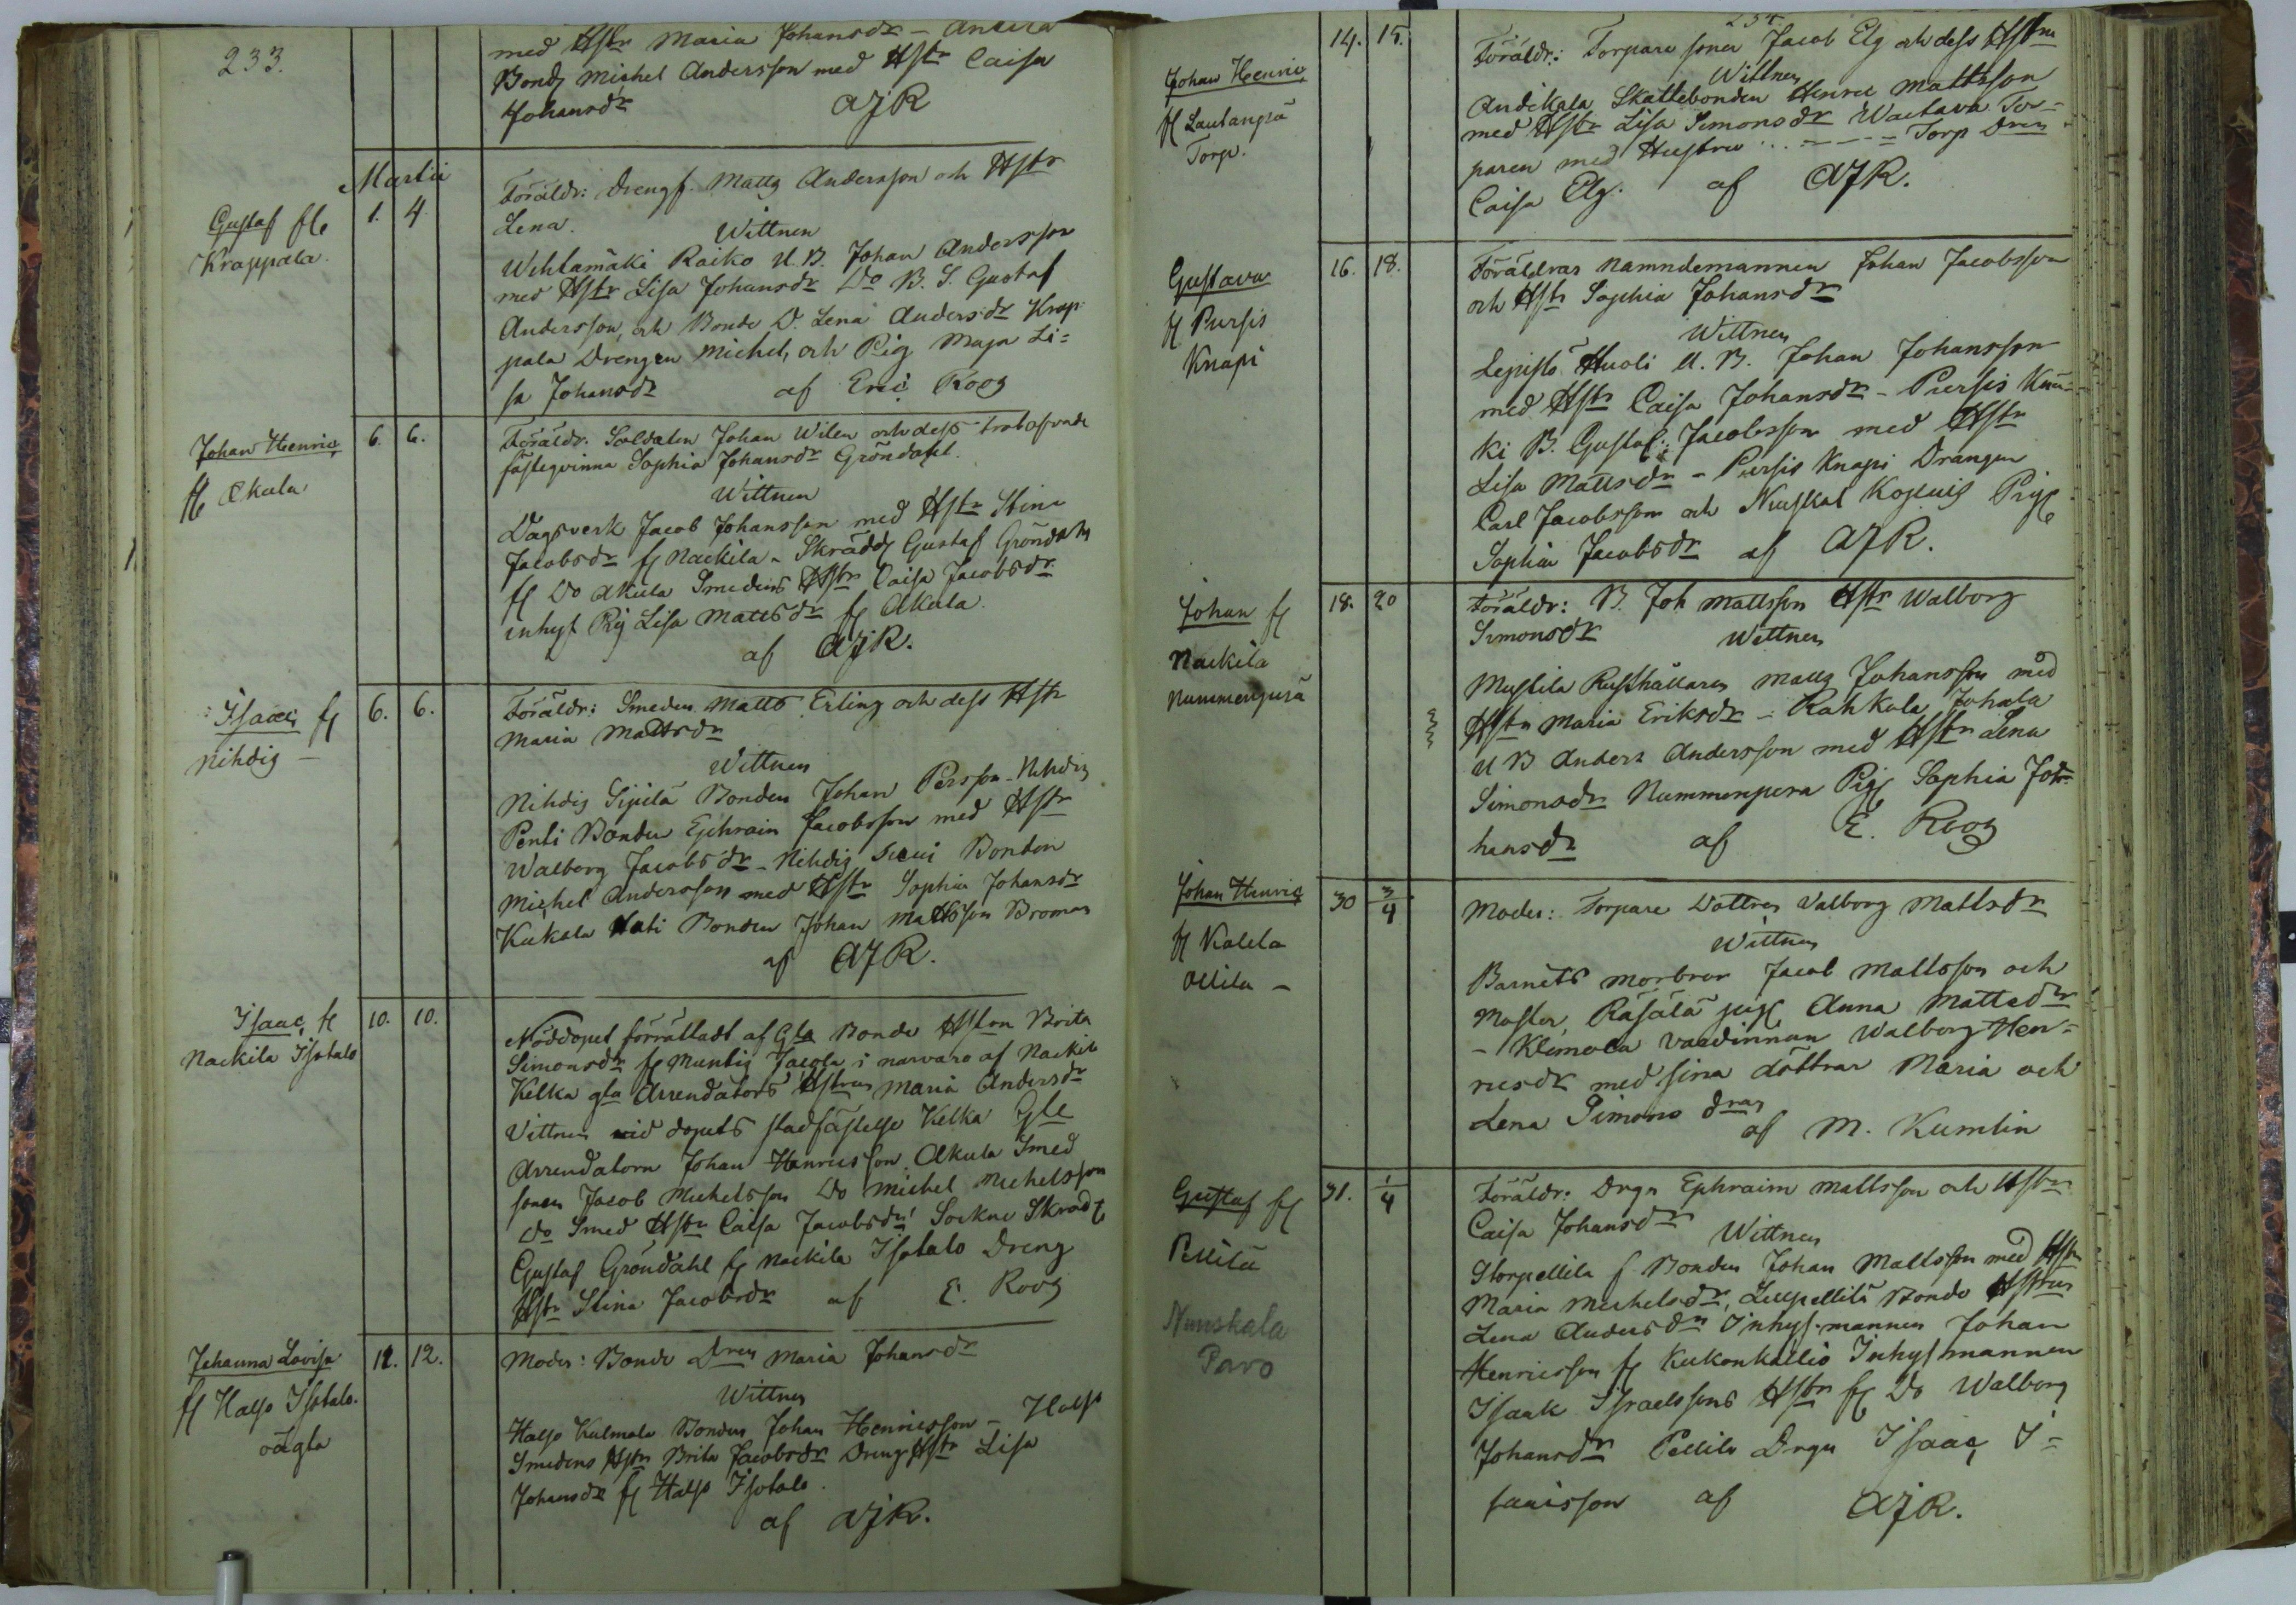 233.
med Hstr Maria Johansdr - Antila
Bond Michel Andersson med Hstr Caisa
Johansdr AJR
Martii
Gustaf
Krappala.
1. 4
Föräldr: Drengf. Matts Andersson och Hstr
Lena.
Wittnen
Wihlamäki Raiko U.B. Johan Andersson
med Hstr Lisa Johansdr Do B. S. Gustaf
Andersson, och Bonde D. Lena Andersdr Krap
pala Drengen Michel, och Pig Maja Li=
sa Johansdr af Eric Roos
Johan Henric
Äkula
6. 6.
Föräldr. Soldaten Johan Wilen och dess trolofvade
fästeqvinna Sophia Johansdr Gröndahl.
Wittnen
Dagsverk Jacob Johansson med Hstr Stina
Jacobsdr fr Nackila - Skrädd Gustaf Gröndahl
fr Do Äkula Smedens Hstr Caisa Jacobsdr
inhys Pig Lisa Mattsdr fr Äkula.
af AJR.
Isaac fr
Nihdig -
6. 6.
Föräldr: Smeden Matts Erling och dess Hstr
Maria Mattsdr
Wittnen
Nihdig Sipilä Bonden Johan Persson - Nihdig
Penti Bonden Ephraim Jacobsson med Hstr
Walborg Jacobsdr - Nihdig Bonden
Michel Andersson med Hstr Sophia Johansdr
Kukola Bonden Johan Mattsson Broman
af AJR.
Isaac fr
Nackila Isotalo
10. 10.
Nöddopet förrättadt af Gla Bonde Hstrn Brita
Simonsdr fr Muntig Jacola i närvaro af Nackila
Kelka gla Arrendators Hstrun Maria Andersdr
Vittnen vid dopets stadfästelse Kelka Gle
Arrendatorn Johan Henricsson. Äkula Smed
sonen Jacob Michelsson Do Michel Michelsson
do Smed Hstr Caisa Jacobsdr Sockne Skrädd
Gustaf Gröndahl fr Nackila Isotalo Dreng
Hstr Stina Jacobsdr af E. Roos
Johanna Lovisa
fr Halso Isotalo.
oägta
12. 12.
Moder: Bonde Dren Maria Johansdr
Wittnen
Halso Kulmala Bonden Johan Henricsson - Halso
Smedens Hstr Brita Jacobsdr Dreng Hstr Lisa
Johansdr fr Halso Isotalo.
af AJR.
234.
Johan Henric
fr Lautanperä
Torp.
14. 15.
Föräldr: Torpare sonen Jacob Elg och dess Hstru
Wittnen
Andikala Skattebonden Henric Mattsson
med Hstr Lisa Simonsdr Waltava Tor=
paren med Hustru ... Torp Dren
Caisa Elg. af AJR.
Gustava
fr Pursis
Knapi
16. 18.
Föräldrar Namndemannen Johan Jacobsson
och Hstr Sophia Johansdr
Wittnen
Lepistö Huoli U. B. Johan Johansson
med Hstr Caisa Johansdr - Pursis
ki B. Gustaf Jacobsson med Hstr
Lisa Mattsdr - Pursis Knapi Drängen
Carl Jacobsson och Pig
Sophia Jacobsdr af AJR.
Johan fr
Nackila
Nummenperä
18. 20
Föräldr: B. Joh Mattsson Hstr Walborg
Simonsdr Wittnen
Mustila Rusthållaren Matts Johansson med
Hstr Maria Eriksdr - Rahkola Johala
U B Anders Andersson med Hstr Lena
Simonsdr Nummenpera Pig Sophia Jo=
hansdr af E. Roos
Johan Henric
fr Kalela
Ollila -
30 3/4
Moder: Torpare Dottren Valborg Mattsdr
Wittnen
Barnets morbror Jacob Mattsson och
Moster, Räsälä pig Anna Mattsdr
- Klemola vaerdinnan Walborg Hen=
ricsdr med sina döttrar Maria och
Lena Simons drar
af M. Kumlin
Gustaf fr
Pellilä
Nunskala
Paro
31. 1/4
Föräldr: Drgn Ephraim Mattsson och Hstr
Caisa Johansdr
Wittnen
Storpellila Bonden Johan Mattsson med Hstr
Maria Michelsdr, Lillpellilä Bonde Hstrun
Lena Andersdr Inhys-mannen Johan
Henricsson fr Kukonkallio Inhysmannen
Isaak Israelssons Hstr fr Do Walborg
Johansdr Pellila Drgn Isaac I=
saacsson af AJR.